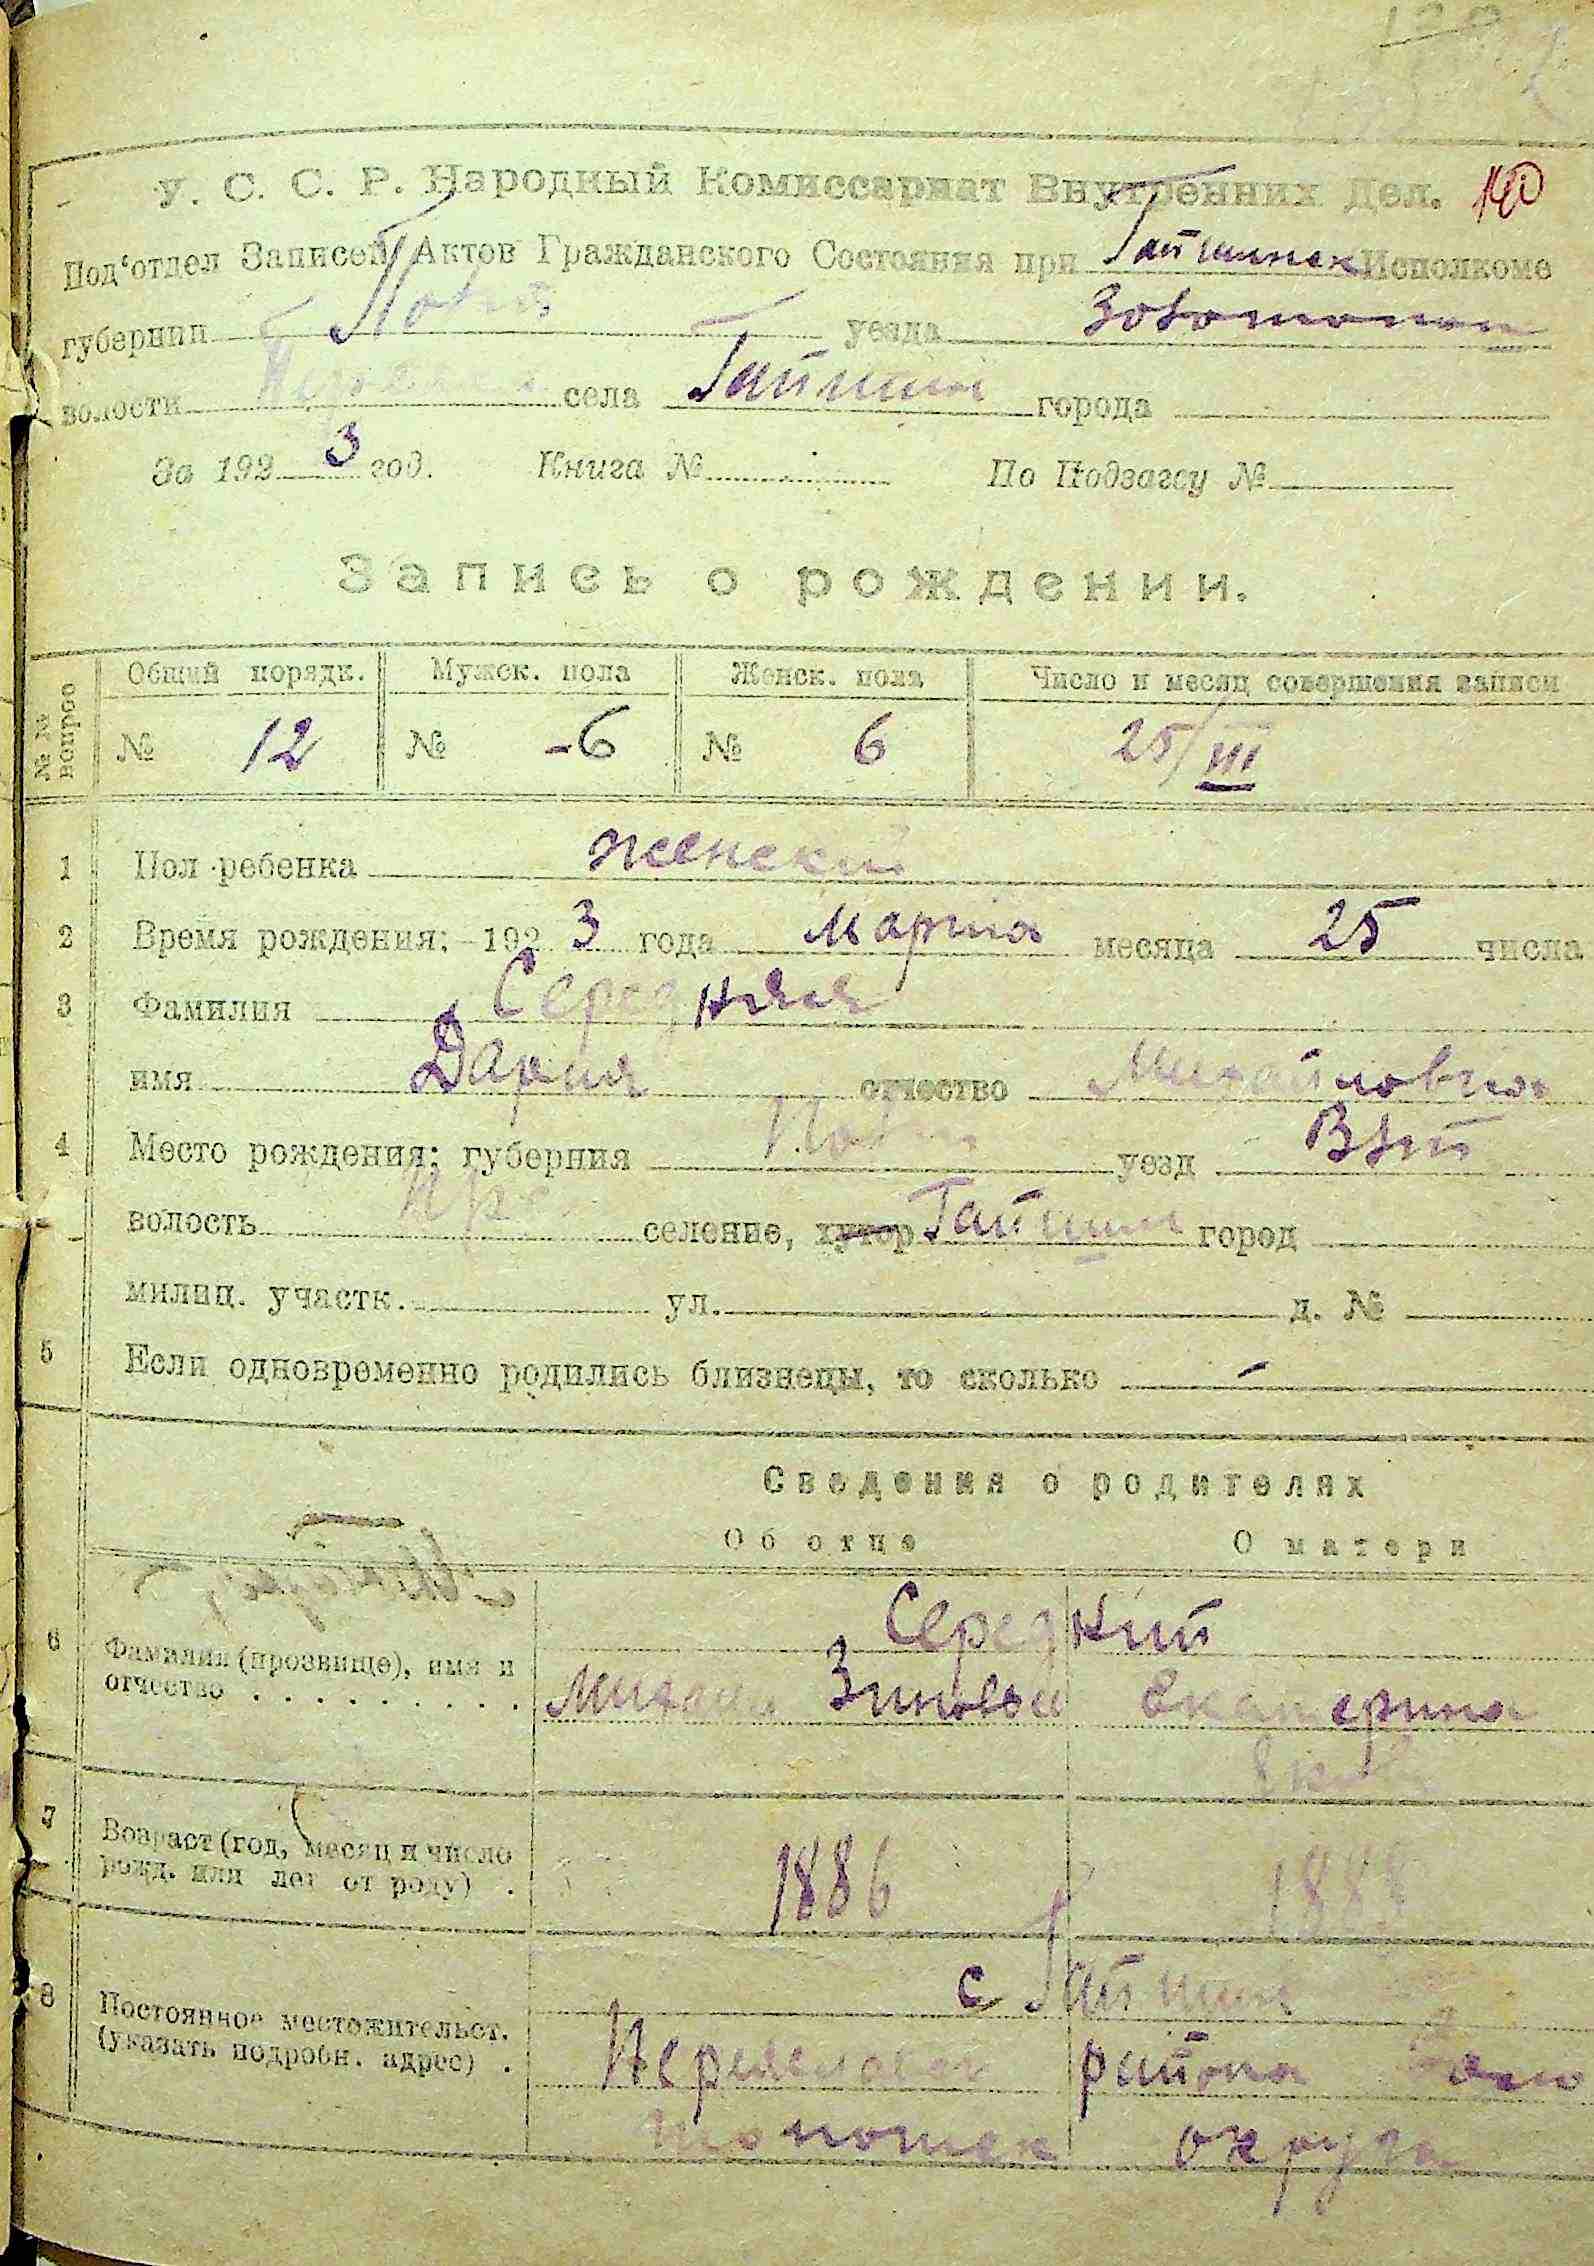 У. С. С. Р. Народный Комиссариат Внутренних Дел. 120
Под'отдел Записей Актов Гражданского Состояния при Гайшинск Исполкоме
губернии Полт уезда Золотонош
волости села Гайшин города
За 1923 год. Книга № По Подзагсу №
Запись о рождении.
№№ вопрос Общий порядк. Мужск. пола Женск. пола Число и месяц совершения записи
№ 12 № -6 № 6 25/III
1 Пол ребенка женский
2 Время рождения: 1923 года марта месяца 25 числа
3 Фамилия Середняя
имя Дария отчество Михайловна
4 Место рождения: губерния Полт уезд
волость селение, хутор Гайшин город
милиц. участк. ул. д. №
5 Если одновременно родились близнецы, то сколько -
Сведения о родителях
Об отце О матери
Середний
6 Фамилия (прозвище), имя и
отчество . . . . . . . . . Михаил Зиновьев Екатерина
7 Возраст (год, месяц и число
рожд. или лет от роду) . 1886 1888
с Гайшин
8 Постоянное местожительст.
(указать подробн. адрес) . района
округа